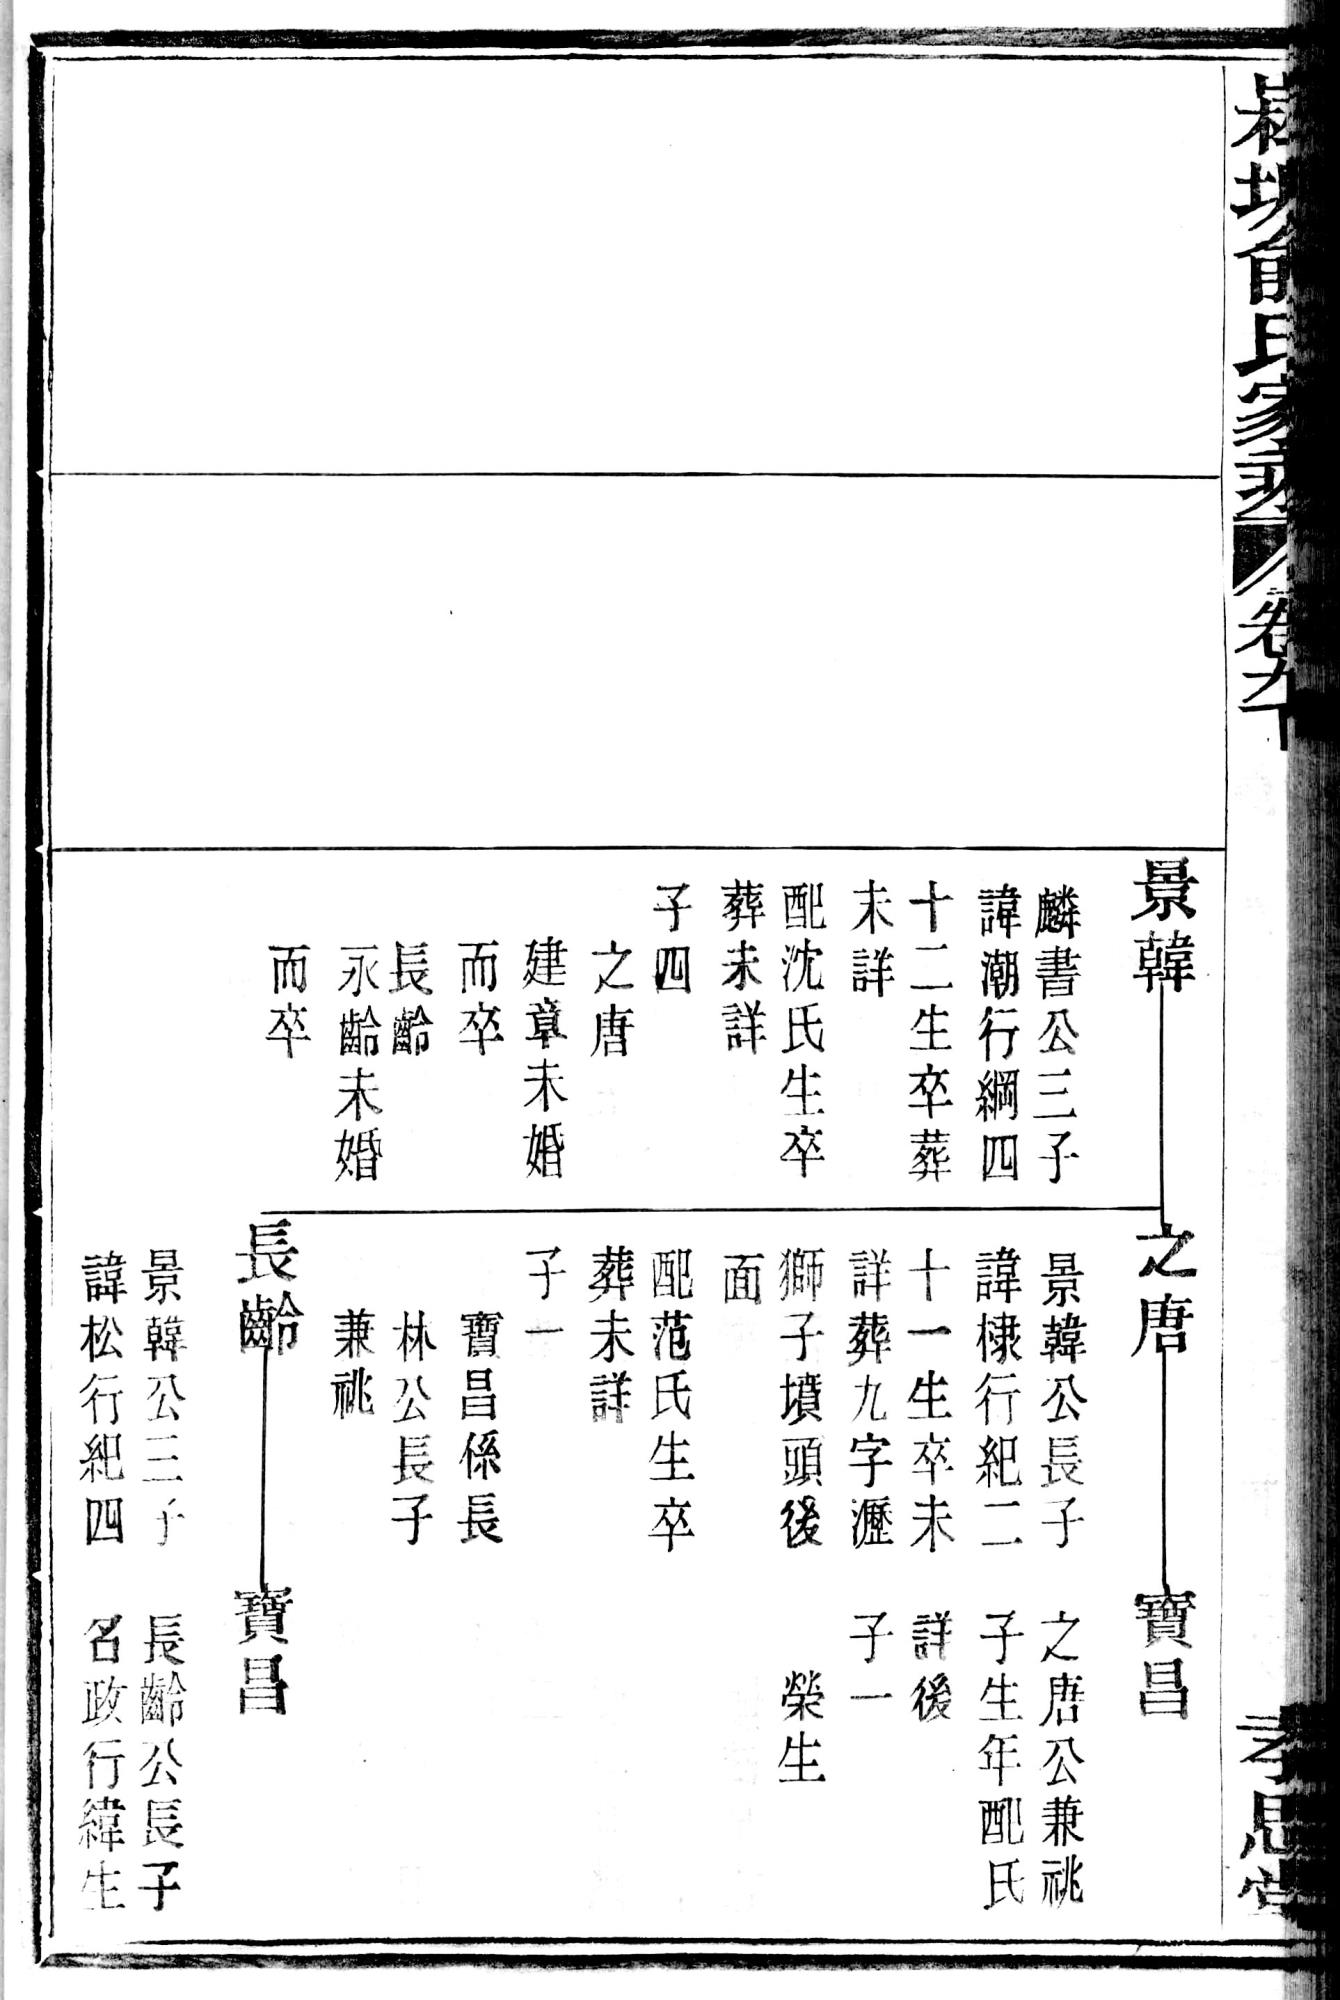 俞氏家乘
卷九下
孝思堂
景韓
麟書公三子
諱潮行綱四
十二生卒葬
未詳
配沈氏生卒
葬未詳
子四
之唐
建章未婚
而卒
長齡
永齡未婚
而卒
之唐
景韓公長子
諱棣行紀二
十一生卒未
詳葬九字瀝
獅子墳頭後
面
配范氏生卒
葬未詳
子一
寶昌係長
林公長子
兼祧
長齡
景韓公三子
諱松行紀四
寶昌
之唐公兼祧
子生年配氏
詳後
子一
榮生
寶昌
長齡公長子
名政行緯生